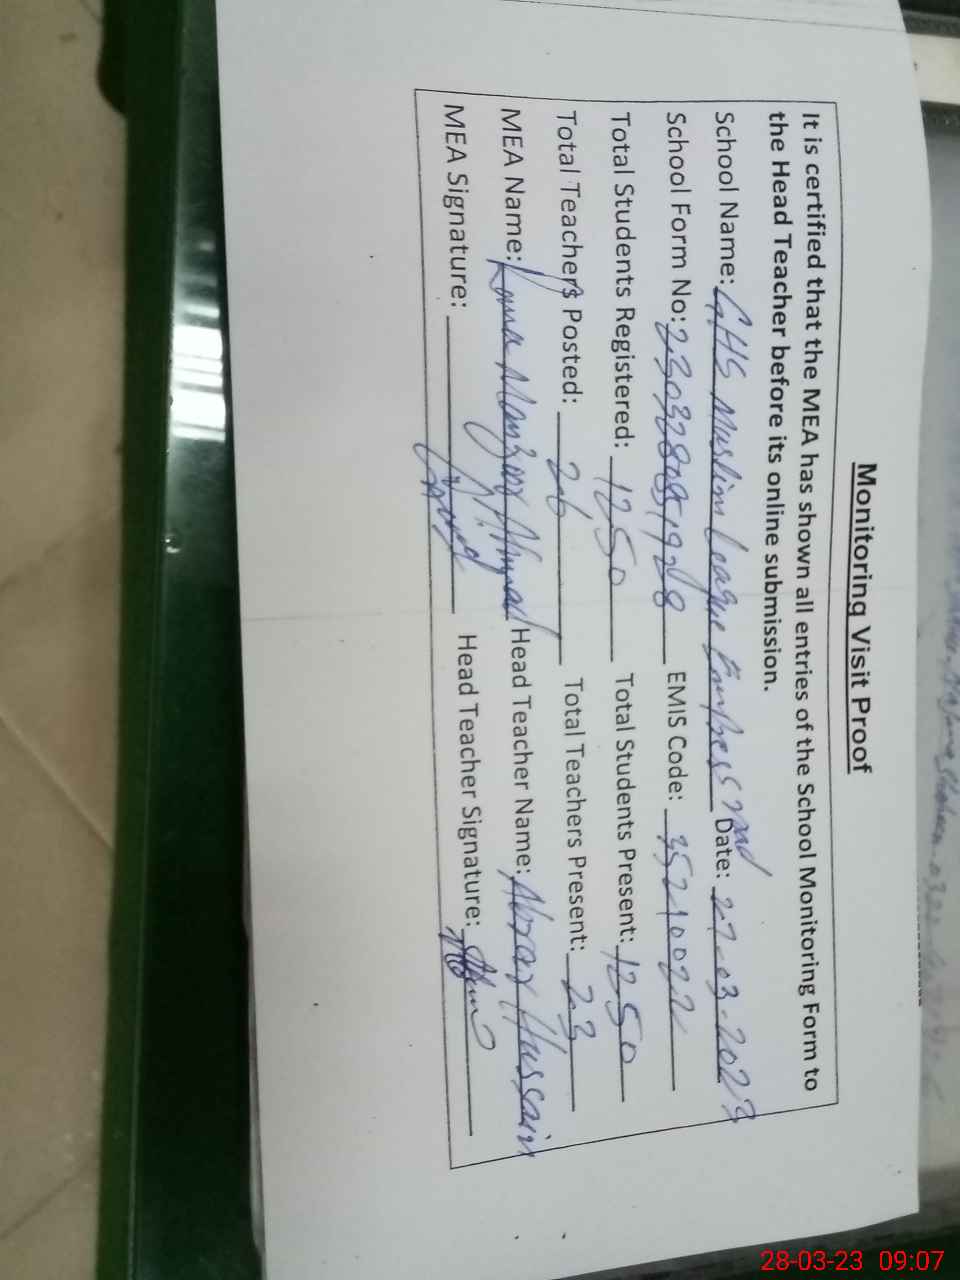 Monitoring Visit Proof
It is certified that the MEA has shown all entries of the School Monitoring Form to
the Head Teacher before its online submission.
School Name: GHS Muslim League Date: 27-03-2023
School Form No: EMIS Code: 35210022
Total Students Registered: 1250 Total Students Present: 1250
Total Teachers Posted: 26 Total Teachers Present: 23
MEA Name: Rana Manzoor Ahmad Head Teacher Name: Abrar Hussain
MEA Signature: Head Teacher Signature:
28-03-23 09:07